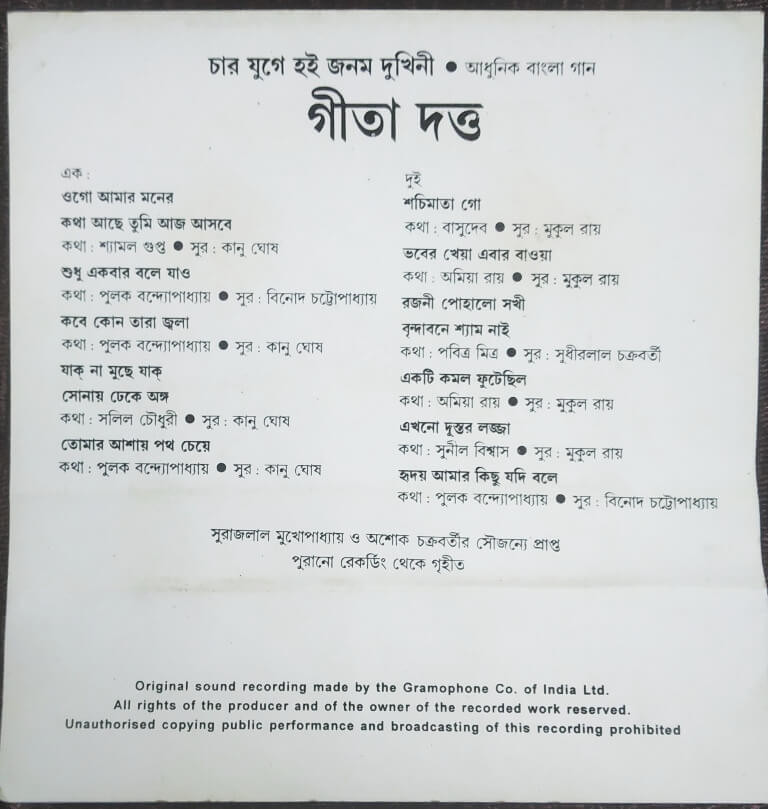 চার যুগে হই জনম দুখিনী ● আধুনিক বাংলা গান
গীতা দত্ত
এক :
ওগো আমার মনের
কথা আছে তুমি আজ আসবে
কথা : শ্যামল গুপ্ত ● সুর : কানু ঘোষ
শুধু একবার বলে যাও
কথা : পুলক বন্দ্যোপাধ্যায় ● সুর : বিনোদ চট্টোপাধ্যায়
কবে কোন তারা জ্বলা
কথা : পুলক বন্দ্যোপাধ্যায় ● সুর : কানু ঘোষ
যাক্ না মুছে যাক্
সোনায় ঢেকে অঙ্গ
কথা : সলিল চৌধুরী ● সুর : কানু ঘোষ
তোমার আশায় পথ চেয়ে
কথা : পুলক বন্দ্যোপাধ্যায় ● সুর : কানু ঘোষ
দুই
শচিমাতা গো
কথা : বাসুদেব ● সুর : মুকুল রায়
ভবের খেয়া এবার বাওয়া
কথা : অমিয়া রায় ● সুর : মুকুল রায়
রজনী পোহালো সখী
বৃন্দাবনে শ্যাম নাই
কথা : পবিত্র মিত্র ● সুর : সুধীরলাল চক্রবর্তী
একটি কমল ফুটেছিল
কথা : অমিয়া রায় ● সুর : মুকুল রায়
এখনো দুস্তর লজ্জা
কথা : সুনীল বিশ্বাস ● সুর : মুকুল রায়
হৃদয় আমার কিছু যদি বলে
কথা : পুলক বন্দ্যোপাধ্যায় ● সুর : বিনোদ চট্টোপাধ্যায়
সুরাজলাল মুখোপাধ্যায় ও অশোক চক্রবর্তীর সৌজন্যে প্রাপ্ত
পুরানো রেকর্ডিং থেকে গৃহীত
Original sound recording made by the Gramophone Co. of India Ltd.
All rights of the producer and of the owner of the recorded work reserved.
Unauthorised copying public performance and broadcasting of this recording prohibited